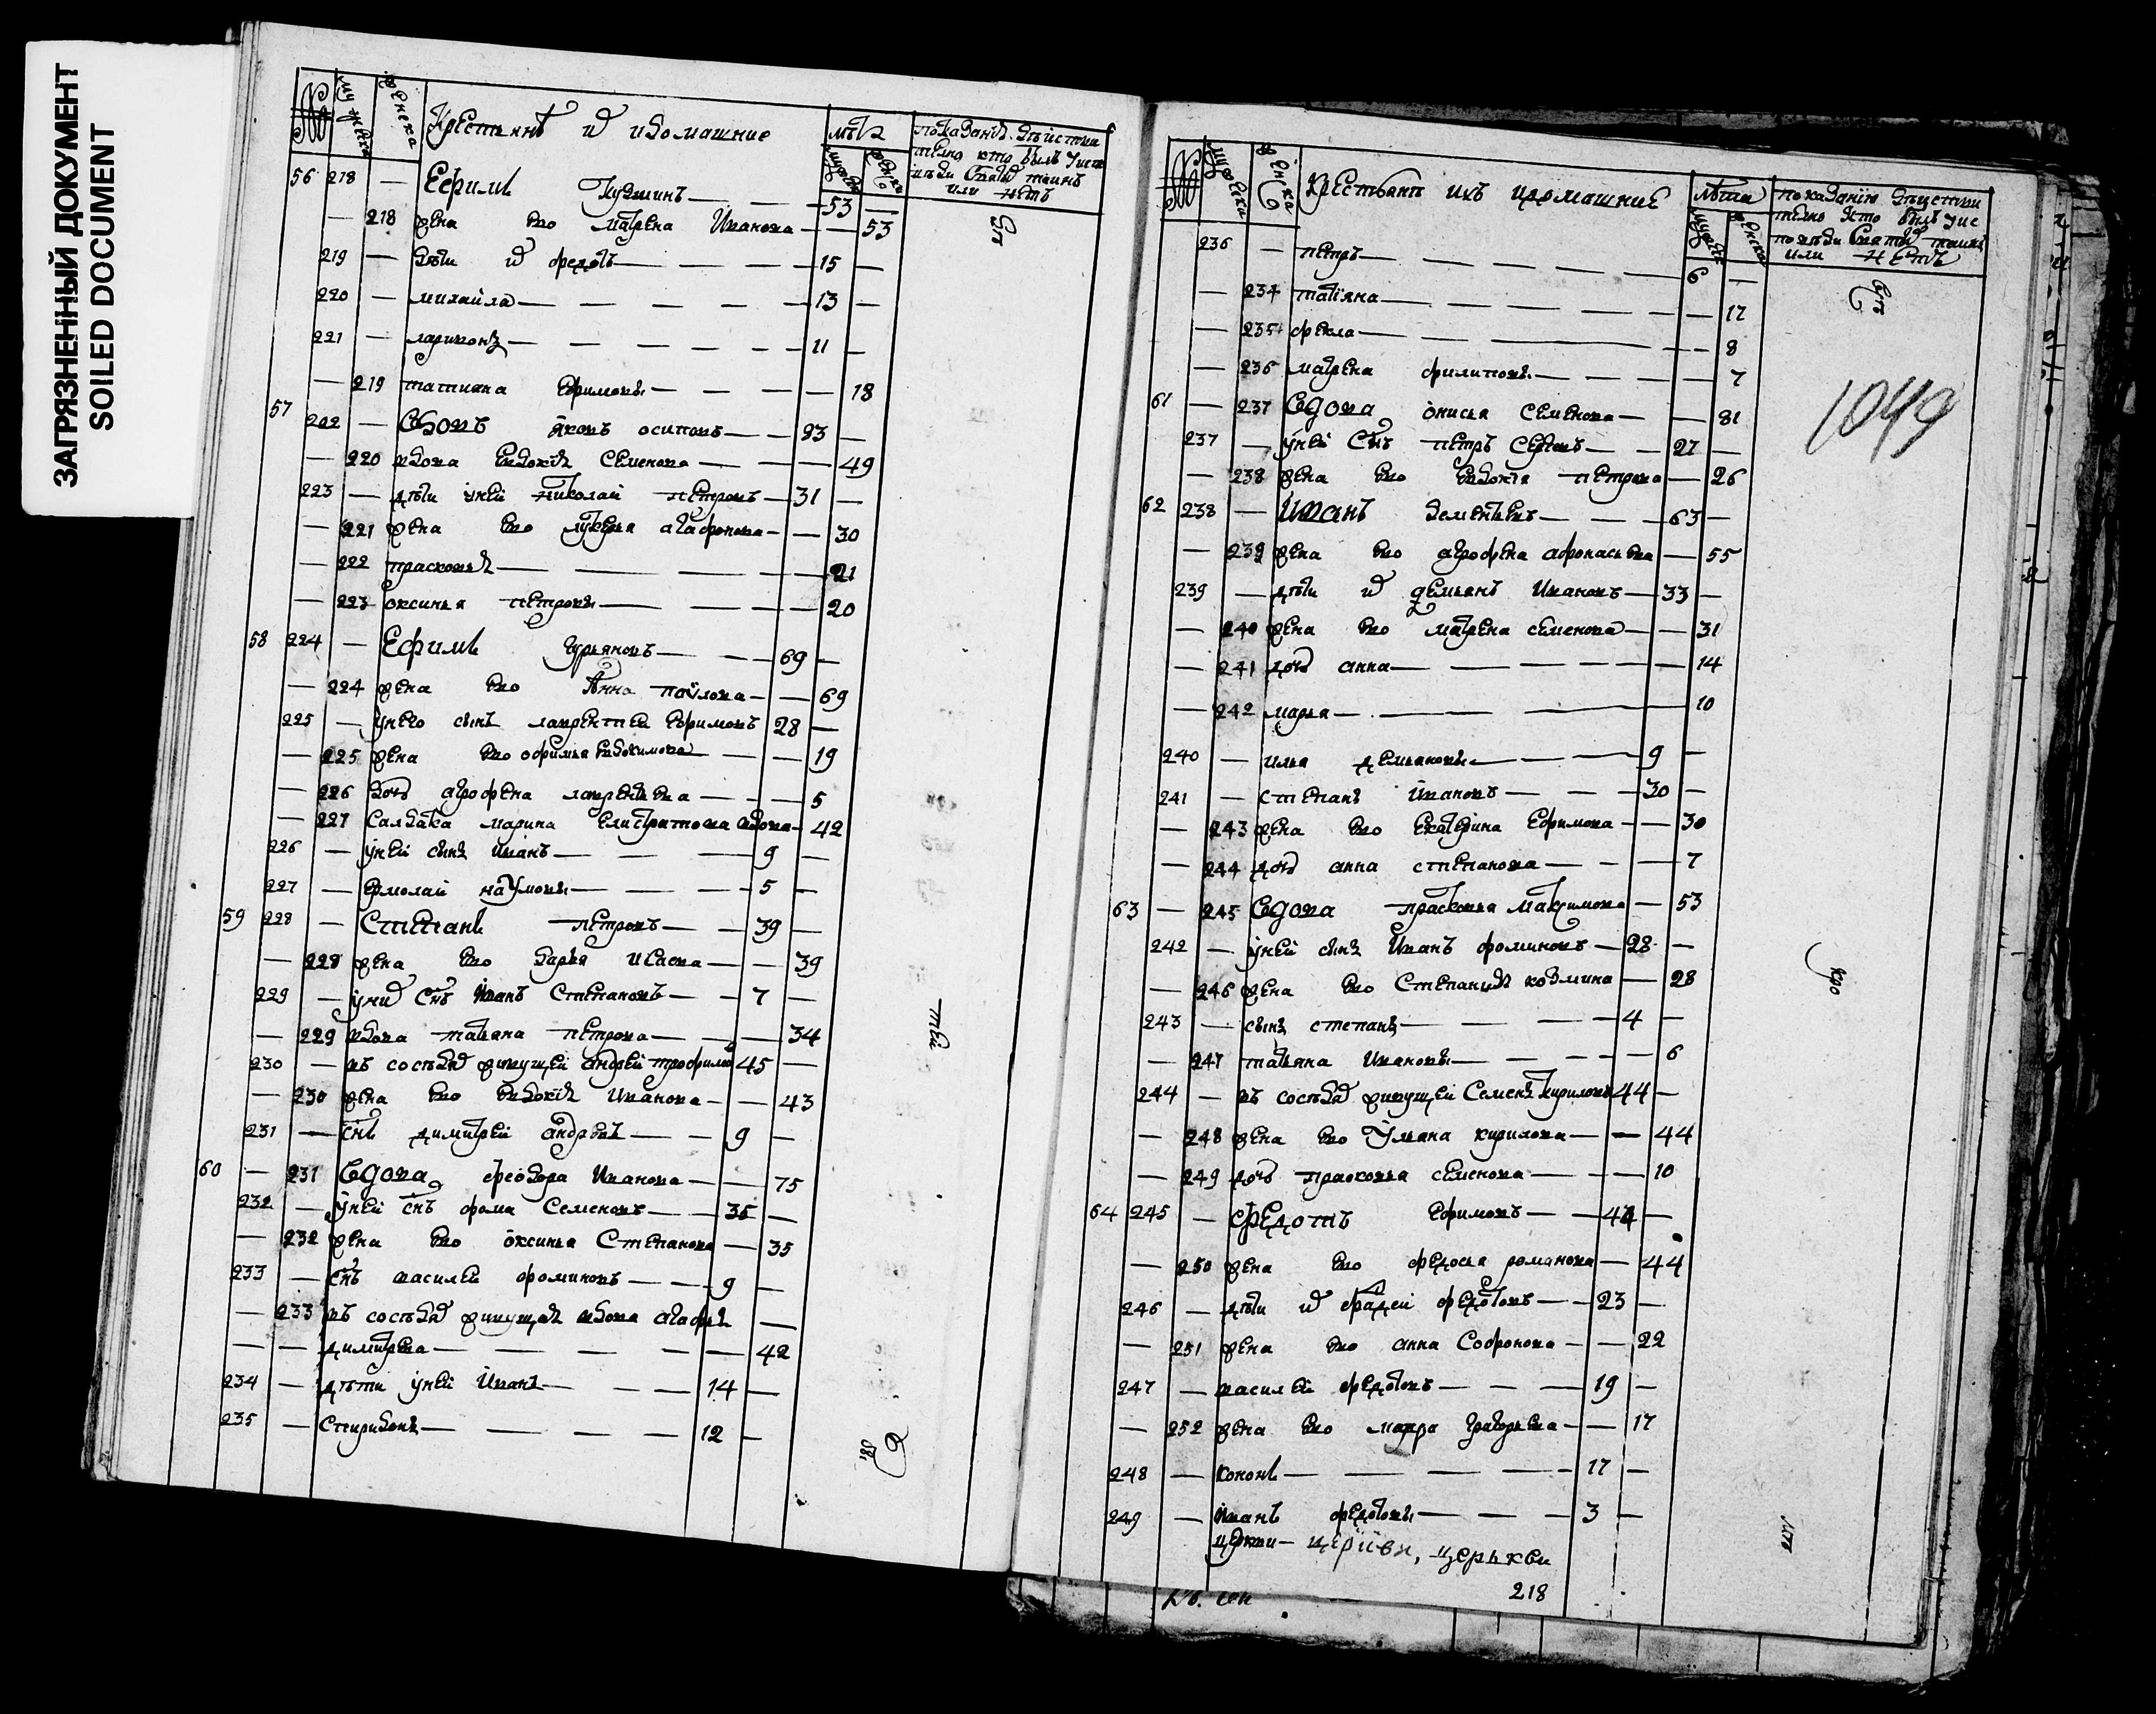 ЗАГРЯЗНЕННЫЙ ДОКУМЕНТ
SOILED DOCUMENT
№ мужска женска Крестьянъ и домашние лѣта
56 218 — Ефимъ Кузминъ — — 53 —
— 218 жена ево матрена Иванова — — 53
219 — дѣти и федотъ — — — 15 —
220 — михайла — — — — — 13 —
221 — ларионъ — — — — — 11 —
— 219 татиана Ефимовы — — — — 18
57 222 — вдовъ яковъ осиповъ — — 93 —
— 220 вдова Евдокия Семенова — — — 49
223 — дѣти у ней николай петровъ — 31 —
— 221 жена ево лукерья агафонова — — 30
— 222 прасковья — — — — 21
— 223 оксинья петровы — — — — 20
58 224 — Ефимъ Гурьяновъ — — 69 —
— 224 жена ево Анна павлова — — 69
225 — у него сынъ лаврентей Ефимовъ 28 —
— 225 жена ево офимья Евдокимова — — 19
— 226 дочь агрофена лаврентьева — — — 5
— 227 Салдатка марина Елистратова вдова — 42
226 — у ней сынъ иванъ — — — 9 —
227 — Ермолай наумовы — — — 5 —
59 228 — Степанъ петровъ — — 39 —
— 228 жена ево дарья исаева — — 39
229 — у них снъ Иванъ Степановъ — — 7 —
— 229 вдова татьяна петрова — — — 34
230 — въ сосѣдях живущей андрей трофимовъ 45 —
— 230 жена ево Евдокия Иванова — — 43
231 — снъ димитрей андреевъ — — 9 —
60 — 231 вдова феодора Иванова — — 75
232 — у ней снъ фома Семеновъ — — 35 —
— 232 жена ево оксинья Степанова — 35
233 — снъ василей фоминовъ — — 9 —
— 233 въ сосѣдях живущая вдова агафья —
— — димитрева — — — — — 42
234 — дѣти у ней Иванъ — — — 14 —
235 — Спиридонъ — — — — 12 —
№ мужска женска Крестьянъ ихъ и домашние лѣта
236 — петръ — — — — 6 —
— 234 татияна — — — — — 17
— 235 фекла — — — — 8
— 236 матрена филиповы — — — — 7
61 — 237 вдова онисья семенова — — 81
237 — у ней снъ петръ Сергѣевъ — — 27 —
— 238 жена ево Евдокия петрова — 26
62 238 — Иванъ дементьевъ — — — 63 —
— 239 жена ево агрофена афонасьева — 55
239 — дѣти и демьянъ Ивановъ — 33 —
— 240 жена ево матрена семенова — — 31
— 241 дочь анна — — — — — 14
— 242 марья — — — — 10
240 — илья демьяновы — — — 9 —
241 — степанъ ивановъ — — — 30 —
— 243 жена ево Екатерина Ефимова — — 30
— 244 дочь анна степанова — — — 7
63 — 245 вдова прасковья Максимова — 53
242 — у ней сынъ Иванъ фоминовъ — 28 —
— 246 жена ево Степанида козмина — 28
243 — сынъ степанъ — — — — 4 —
— 247 татьяна Ивановы — — — — 6
244 — въ сосѣдях живущей Семенъ кириловъ 44 —
— 248 жена ево Ульяна кирилова — — 44
— 249 дочь прасковья семенова — — — 10
64 245 — Федотъ Ефимовъ — — 44 —
— 250 жена ево федосья романова — 44
246 — дѣти и фадей федотовъ — — 23 —
— 251 жена ево анна Софонова — — 22
247 — василей федотовъ — — — 19 —
— 252 жена ево мавра григорьева — — 17
248 — кононъ — — — — — 17 —
249 — Иванъ федотовы — — — 3 —
церкви — церкви, церькви
218
1049